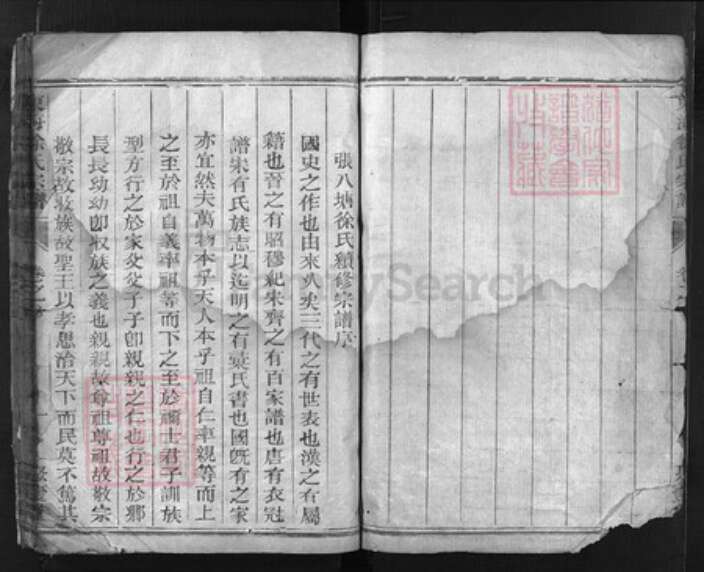 張八塘徐氏續修宗譜序
國史之作也由來久矣三代之有世表也漢之有屬
籍也晉之有昭穆紀宋齊之有百家譜也唐有衣冠
譜宋有氏族志以迄明之有袁氏書也國旣有之家
亦宜然夫萬物本乎天人本乎祖自仁率親等而上
之至於祖自義率祖等而下之至於禰士君子訓族
型方行之於家父父子子卽親親之仁也行之於鄉
長長幼幼卽收族之義也親親故尊祖尊祖故敬宗
敬宗故收族故聖王以孝思治天下而民莫不篤其
徐氏宗譜